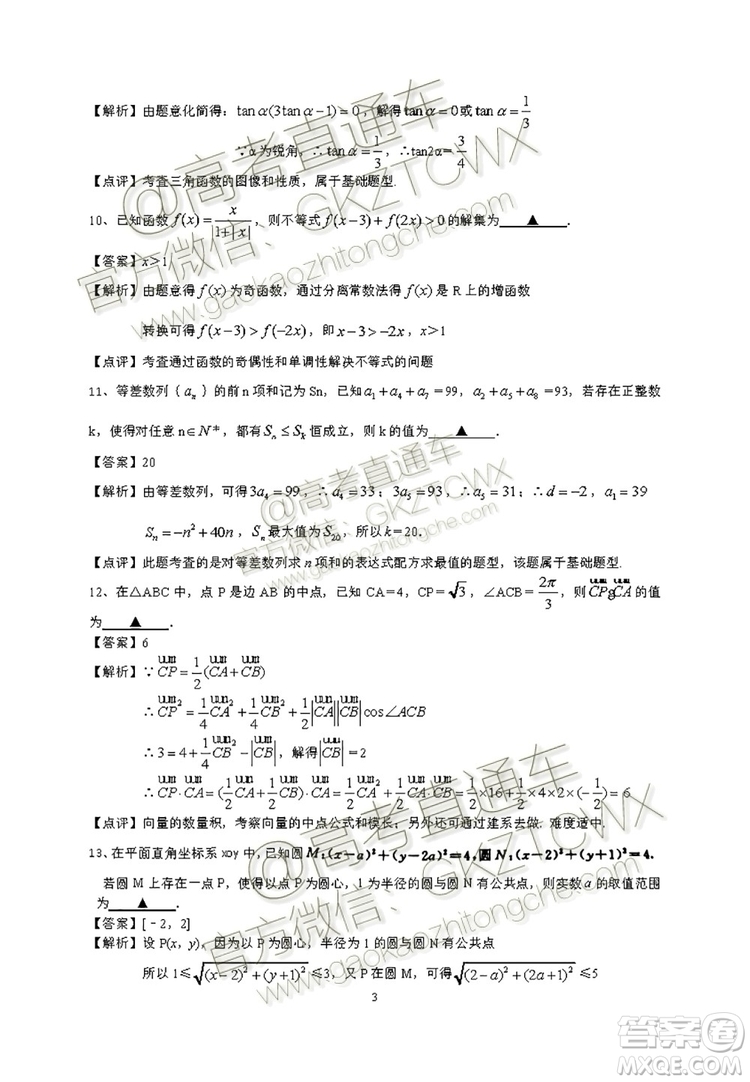 【解析】由题意化简得：tanα(3tanα−1)=0，解得tanα=0或tanα=1/3
∵α为锐角，∴tanα=1/3，∴tan2α=3/4
【点评】考查三角函数的图像和性质，属于基础题型.
10、已知函数f(x)=x/(1+|x|)，则不等式f(x−3)+f(2x)>0的解集为 ▲ ．
【答案】x>1
【解析】由题意得f(x)为奇函数，通过分离常数法得f(x)是R上的增函数
转换可得f(x−3)>f(−2x)，即x−3>−2x，x>1
【点评】考查通过函数的奇偶性和单调性解决不等式的问题
11、等差数列｛aₙ｝的前n项和记为Sn，已知a₁+a₄+a₇=99，a₂+a₅+a₈=93，若存在正整数
k，使得对任意n∈N*，都有Sₙ≤Sₖ恒成立，则k的值为 ▲ ．
【答案】20
【解析】由等差数列，可得3a₄=99，∴a₄=33；3a₅=93，∴a₅=31；∴d=−2，a₁=39
Sₙ=−n²+40n，Sₙ最大值为S₂₀，所以k=20．
【点评】此题考查的是对等差数列求n项和的表达式配方求最值的题型，该题属于基础题型.
12、在△ABC中，点P是边AB的中点，已知CA=4，CP=√3，∠ACB=2π/3，则CPgCA的值
为 ▲ ．
【答案】6
【解析】∵CP=1/2(CA+CB)
∴CP²=1/4CA²+1/4CB²+1/2|CA||CB|cos∠ACB
∴3=4+1/4CB²−|CB|，解得|CB|=2
∴CP·CA=(1/2CA+1/2CB)·CA=1/2CA²+1/2CA·CB=1/2×16+1/2×4×2×(−1/2)=6
【点评】向量的数量积，考察向量的中点公式和模长；另外还可通过建系去做.难度适中.
13、在平面直角坐标系xoy中，已知圆M：(x−a)²+(y−2a)²=4，圆N：(x−2)²+(y+1)²=4．
若圆M上存在一点P，使得以点P为圆心，1为半径的圆与圆N有公共点，则实数a的取值范围
为 ▲
【答案】[﹣2，2]
【解析】设P(x，y)，因为以P为圆心，半径为1的圆与圆N有公共点
所以1≤√((x−2)²+(y+1)²)≤3，又P在圆M，可得√((2−a)²+(2a+1)²)≤5
3
@高考直通车
官方微信：GKZTCWX
www.gaokaozhitongche.com
@高考直通车
官方微信：GKZTCWX
www.gaokaozhitongche.com
@高考直通车
官方微信：GKZTCWX
www.gaokaozhitongche.com
答案圈
MXQE.COM